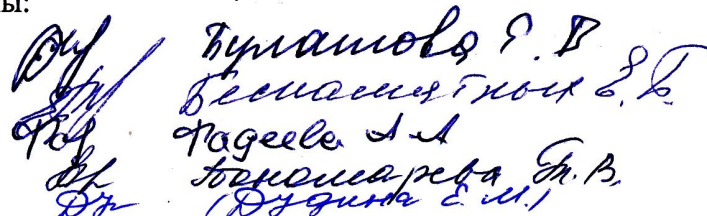 ы:
Булашова Г. В
Беспамятных Е.Б.
Фадеева А А
Пономарева Т.В.
(Дудина Е.М.)